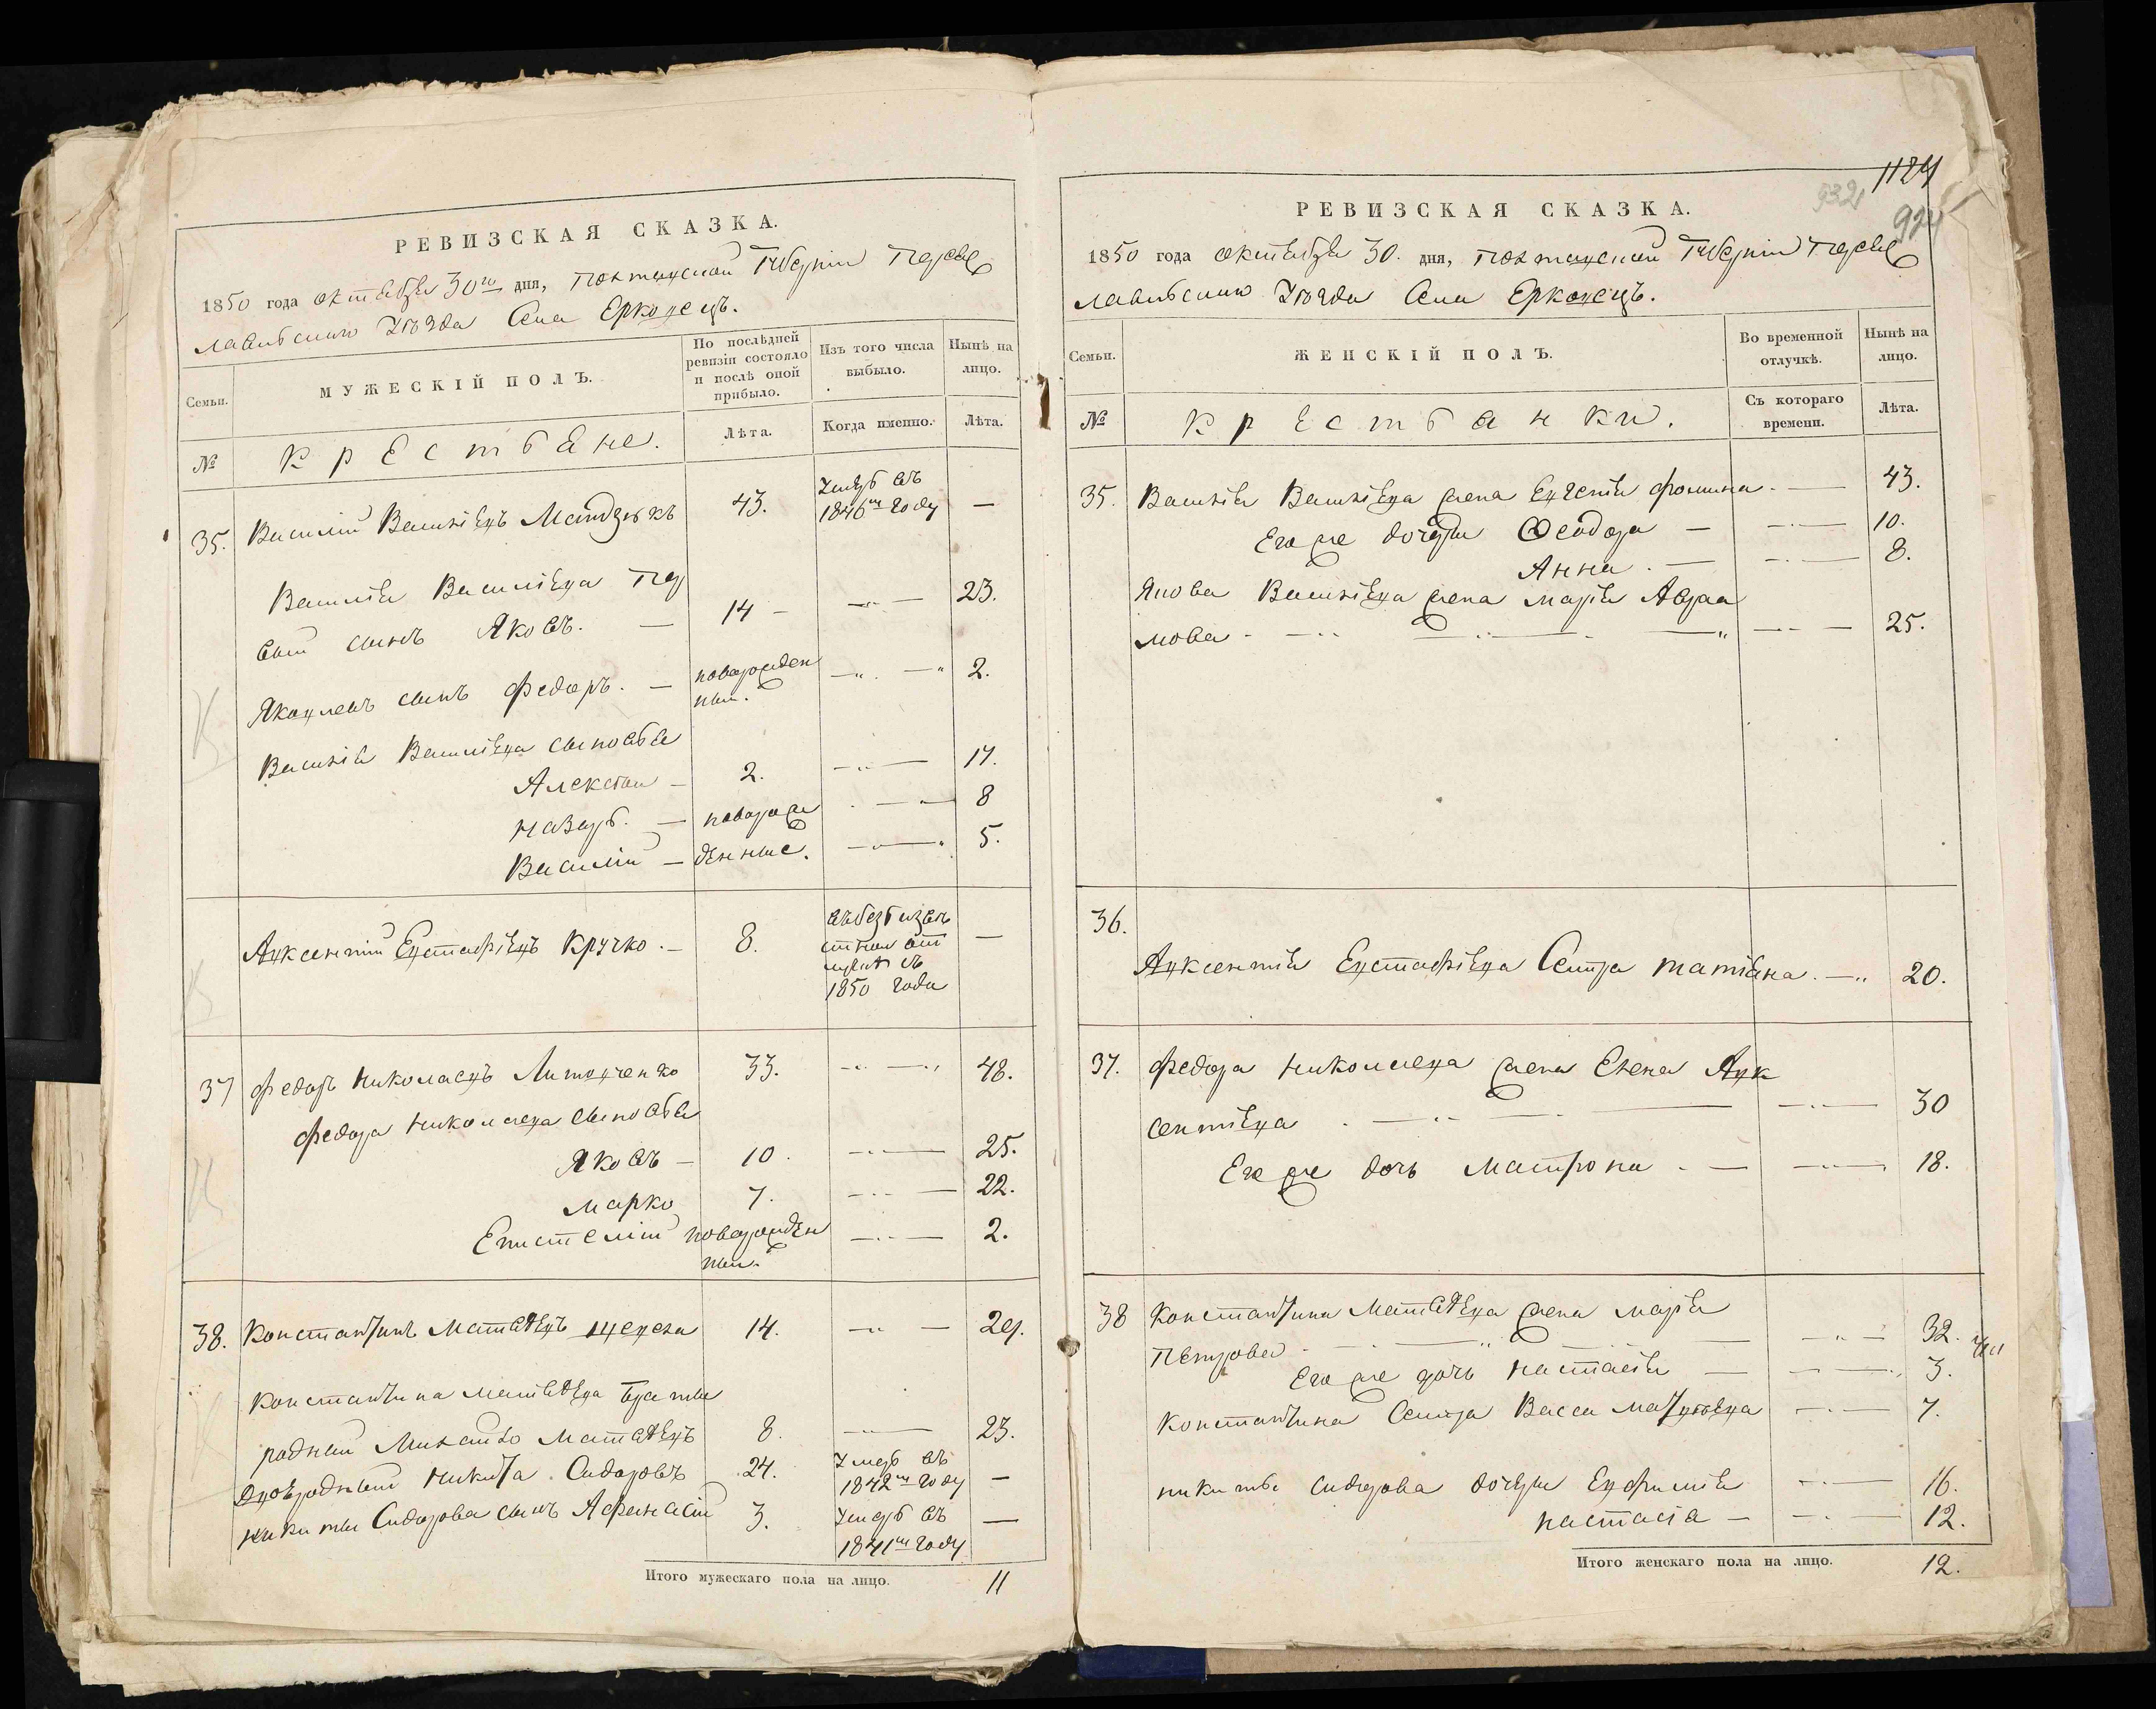 РЕВИЗСКАЯ СКАЗКА.
1850 года октября 30го дня, Полтавской Губерніи Перея
славльскаго Уѣзда Села Ерковецъ.
Семьи.
МУЖЕСКІЙ ПОЛЪ.
По послѣдней ревизіи состояло и послѣ оной прибыло.
Изъ того числа выбыло.
Нынѣ на лицо.
№
Крестьяне.
Лѣта.
Когда именно.
Лѣта.
35. Василій Васильевъ 43. Умеръ въ —
1846м году
Василія Васильева пер
вый сынъ Яковъ. — 14 — — 23.
Яковлевъ сынъ Федоръ. — новорожден — 2.
ный.
Василія Васильева сыновья
Алексѣй — 2. — 17.
Назаръ. — новорож — 8
Василій — денные. — 5.
Авксентій Евстафіевъ Кручко. — 8. въ безъизвѣ —
стной от
лучкѣ съ
1850 года
37 Федоръ Николаевъ Литовченко 33. — 48.
Федора Николаева сыновья
Яковъ — 10. — 25.
Марко 7. — 22.
Евистелій новорожден — 2.
ный.
38. Константинъ Матвѣевъ 14. — 29.
Константина Матвѣева братья
родный Михайло Матвѣевъ 8. — 23.
Двоюродный Никита Сидоровъ 24. Умеръ въ —
1842м году
Никиты Сидорова сынъ Афанасій 3. Умеръ въ —
1841м году
Итого мужескаго пола на лицо. 11
1124
932
924
РЕВИЗСКАЯ СКАЗКА.
1850 года октября 30. дня, Полтавской Губерніи Перея
славльскаго Уѣзда Села Ерковецъ.
Семьи.
ЖЕНСКІЙ ПОЛЪ.
Во временной отлучкѣ.
Нынѣ на лицо.
№
Крестьянки.
Съ котораго времени.
Лѣта.
35. Василія Васильева жена Евгенія Фомина. — 43.
Его же дочери Феодора — 10.
Анна. — 8.
Якова Васильева жена Марія Авраа
мова — 25.
36.
Авксентія Евстафіева Сестра Татіяна. — 20.
37. Федора Николаева жена Елена Авк
сентіева — 30
Его же дочь Матрона — 18.
38 Константина Матвѣева жена Марія
Петрова — 32.
Его же дочь Настасія — 3.
Константина Сестра Васса Матвѣева — 7.
Никиты Сидорова дочери Евфимія — 16.
Настасія — 12.
Итого женскаго пола на лицо. 12.